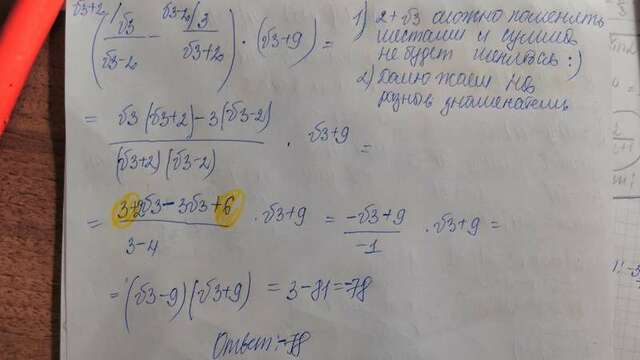 √3+2 √3-2
(√3/(√3-2) - 3/(√3+2)) · (√3+9) =
1) 2+√3 можно поменять
местами и сумма
не будет меняться :)
2) Домножаем на
разные знаменатели
= (√3(√3+2)-3(√3-2))/((√3+2)(√3-2)) · √3+9 =
= (3+2√3-3√3+6)/(3-4) · √3+9 = (-√3+9)/(-1) · √3+9 =
= (√3-9)(√3+9) = 3-81=-78
Ответ:-78